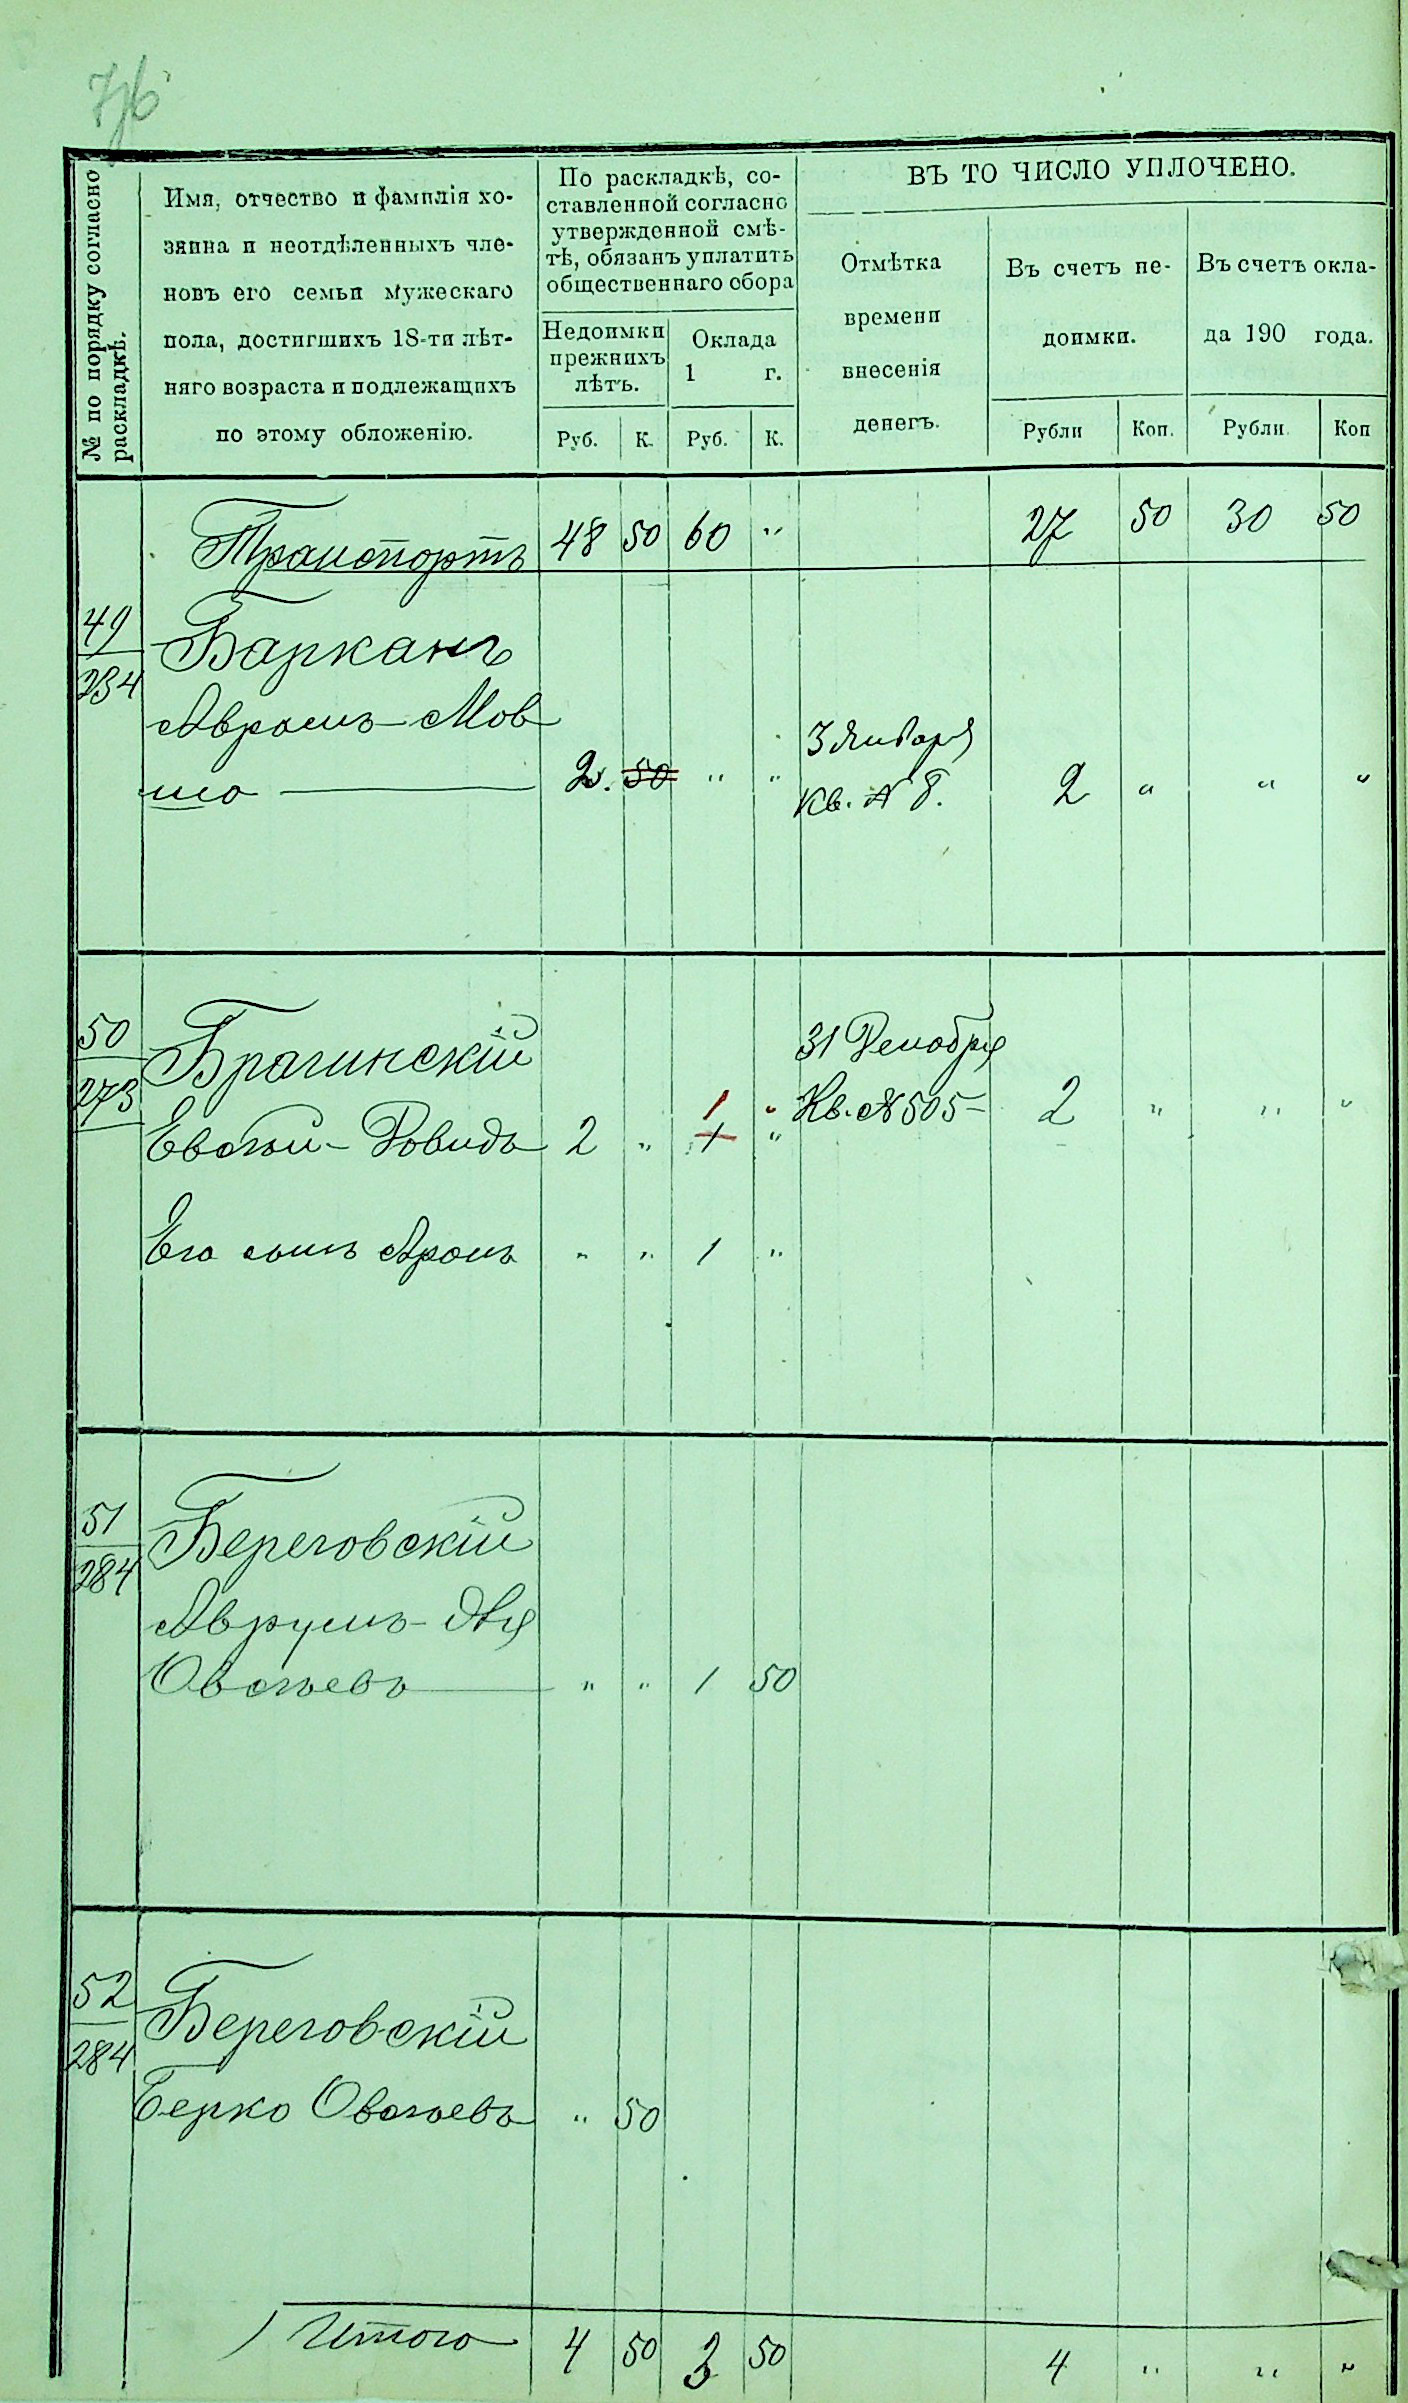 76
№ по порядку согласно
раскладкѣ.
Имя, отчество и фамилія хо-
зяина и неотдѣленныхъ чле-
новъ его семьи мужескаго
пола, достигшихъ 18-ти лѣт-
няго возраста и подлежащихъ
по этому обложенію.
По раскладкѣ, со-
ставленной согласно
утвержденной смѣ-
тѣ, обязанъ уплатить
общественнаго сбора
Недоимки
прежнихъ
лѣтъ.
Оклада
1 г.
Руб. К. Руб. К.
ВЪ ТО ЧИСЛО УПЛОЧЕНО.
Отмѣтка
времени
внесенія
денегъ.
Въ счетъ не-
доимки.
Въ счетъ окла-
да 190 года.
Рубли Коп. Рубли Коп
Транспортъ 48 50 60 " 27 50 30 50
49
234
Барканъ
Аврамъ-Мов
ша 2. 50 " " 2 " " "
3 Января
Кв. № 8.
50
273
Брагинскій
31 Декабря
1 " Кв. № 505- 2 " " "
Евсѣй-Довидъ 2 " 1 "
Его сынъ Аронъ " " 1 "
51
284
Береговскій
Аврумъ-Ая
Овсѣевъ " " 1 50
52
284
Береговскій
Берко Овсѣевъ " 50
Итого 4 50 3 50 4 " " "